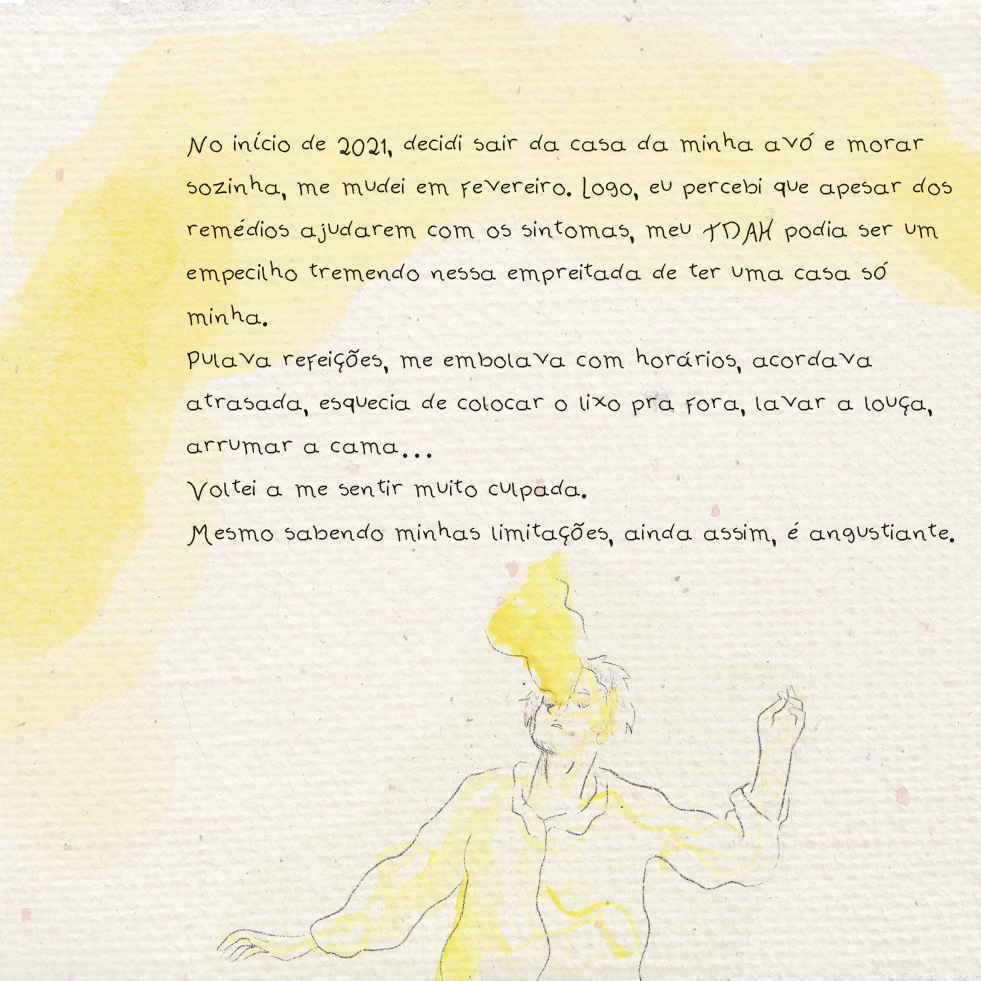 No início de 2021, decidi sair da casa da minha avó e morar
sozinha, me mudei em fevereiro. Logo, eu percebi que apesar dos
remédios ajudarem com os sintomas, meu TDAH podia ser um
empecilho tremendo nessa empreitada de ter uma casa só
minha.
Pulava refeições, me embolava com horários, acordava
atrasada, esquecia de colocar o lixo pra fora, lavar a louça,
arrumar a cama...
Voltei a me sentir muito culpada.
Mesmo sabendo minhas limitações, ainda assim, é angustiante.